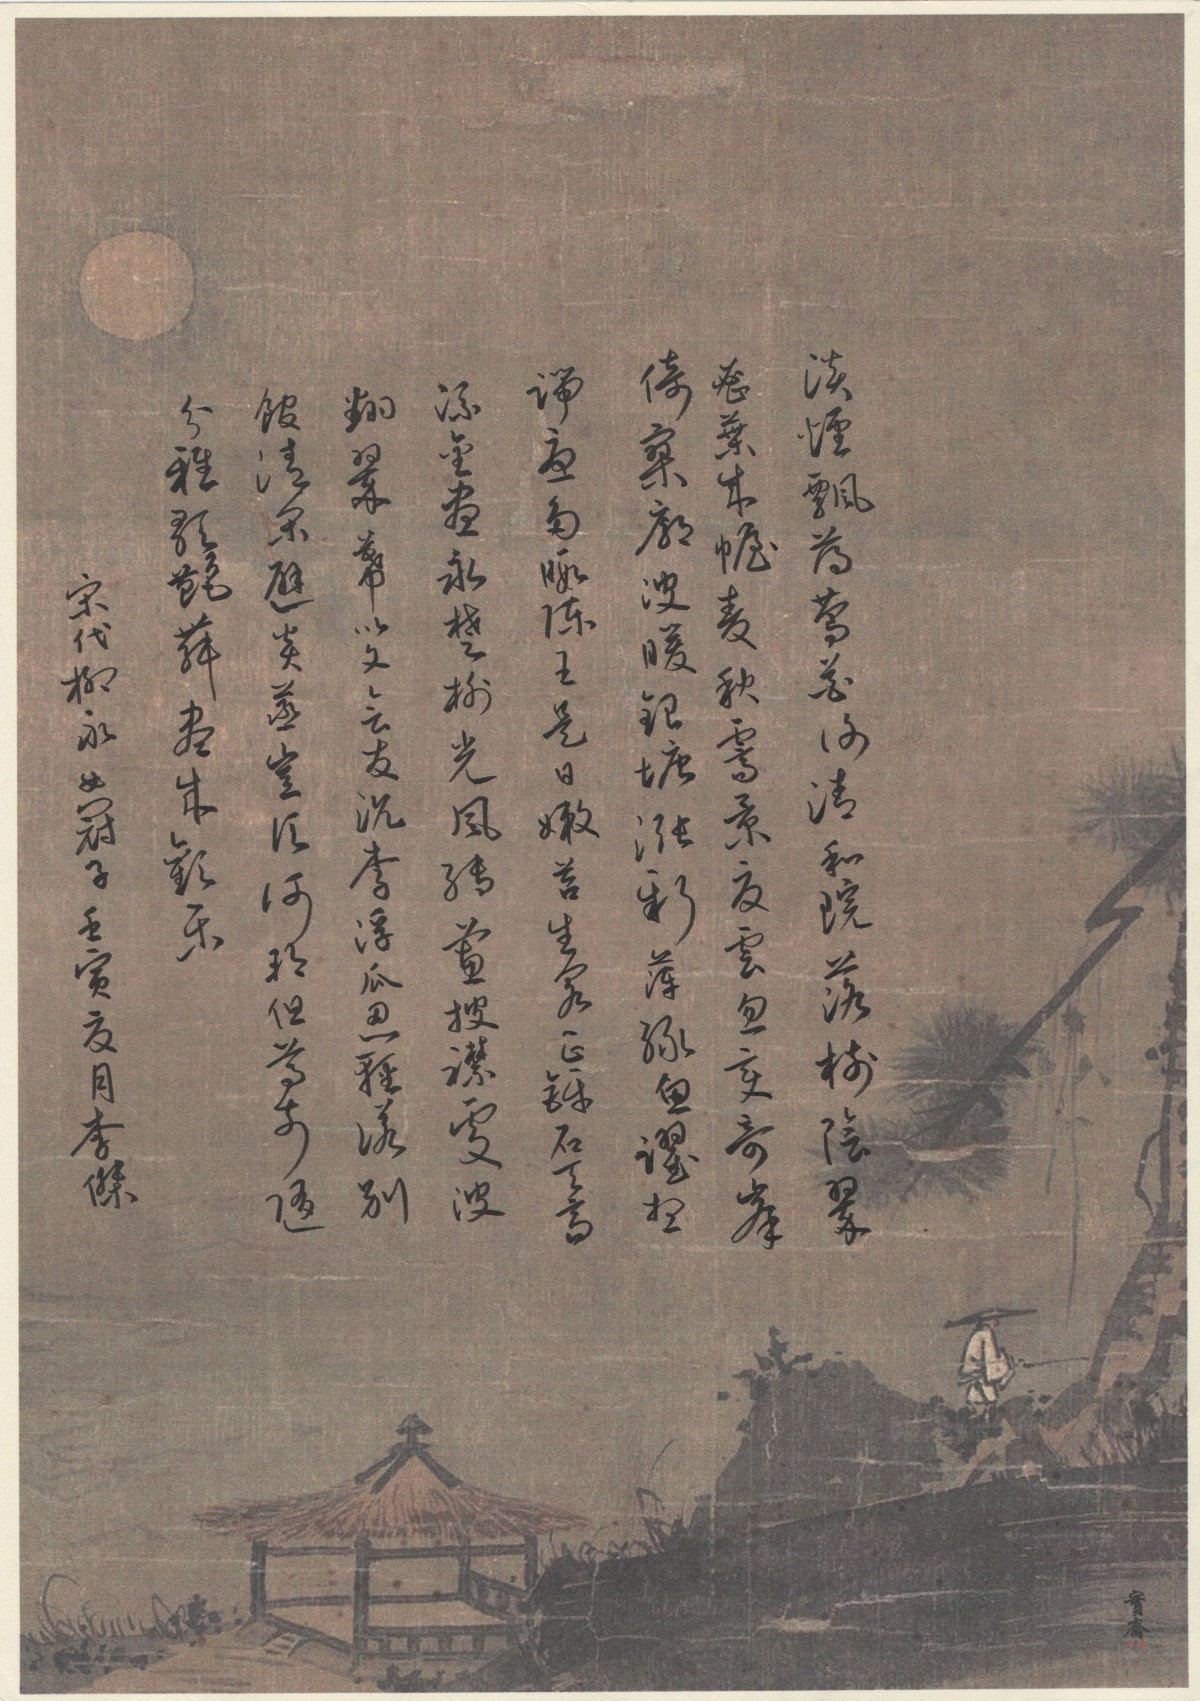 淡煙飄薄鶯花谢清和院落樹陰翠
密葉成幄麦秋霽景夏雲忽变奇峯
倚寥廓波暖銀塘漲新萍綠魚躍想
端憂多暇陳王是日嫩苔生閣正鑠石天高
流金晝永楚榭光風轉蕙披襟處波
翻翠幕以文会友沉李浮瓜忍輕諾別
館清閑避炎蒸豈須河朔但尊前隨
分雅歌艷舞盡成歡樂
宋代柳永女冠子壬寅夏月李傑